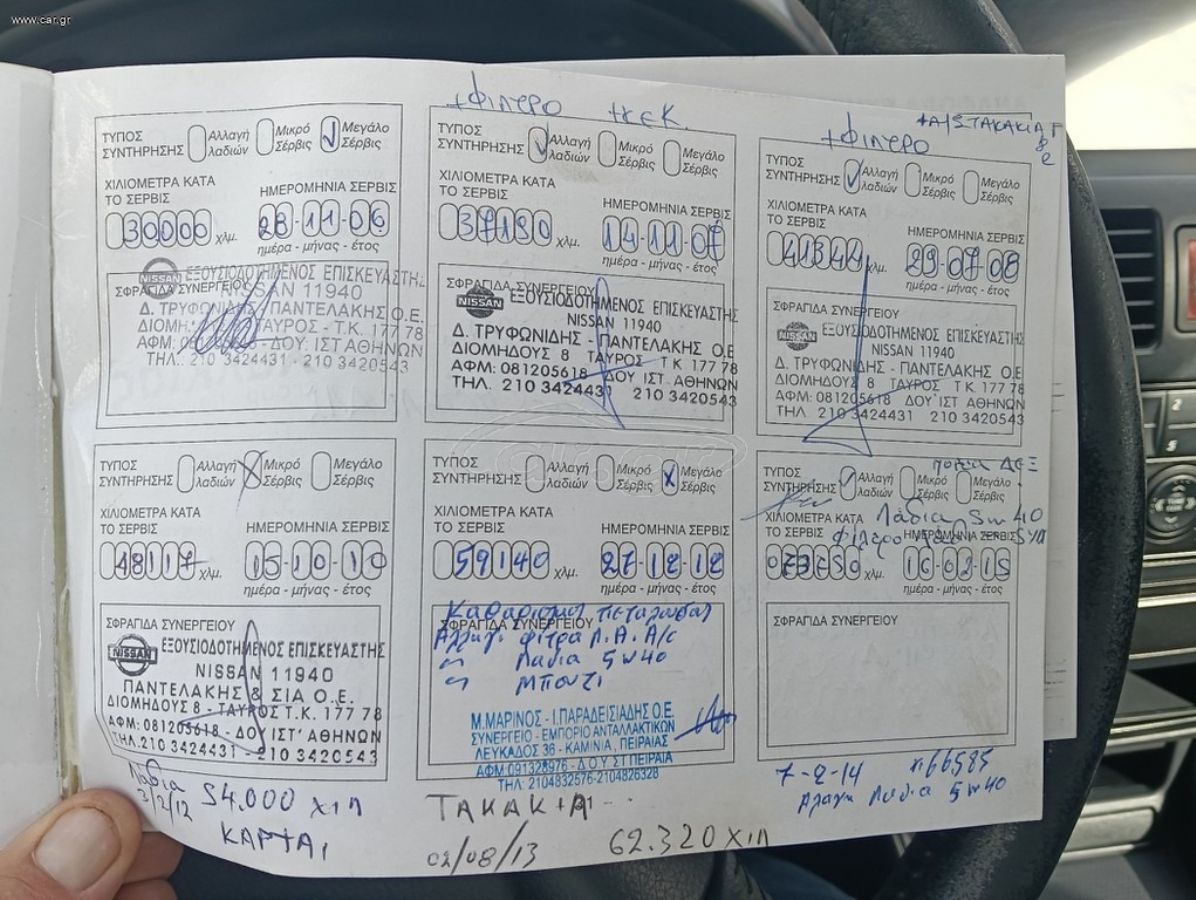 www.car.gr
+ΦΙΛΤΡΟ +ΚΕΚ.
ΤΥΠΟΣ ΣΥΝΤΗΡΗΣΗΣ Αλλαγή λαδιών Μικρό Σέρβις Μεγάλο Σέρβις
ΧΙΛΙΟΜΕΤΡΑ ΚΑΤΑ ΤΟ ΣΕΡΒΙΣ
30000 χλμ.
ΗΜΕΡΟΜΗΝΙΑ ΣΕΡΒΙΣ
28-11-06
ημέρα - μήνας - έτος
ΣΦΡΑΓΙΔΑ ΣΥΝΕΡΓΕΙΟΥ
NISSAN ΕΞΟΥΣΙΟΔΟΤΗΜΕΝΟΣ ΕΠΙΣΚΕΥΑΣΤΗΣ
NISSAN 11940
Δ. ΤΡΥΦΩΝΙΔΗΣ ΠΑΝΤΕΛΑΚΗΣ Ο.Ε.
ΔΙΟΜΗ. ΤΑΥΡΟΣ - Τ.Κ. 177 78
ΑΦΜ: ΔΟΥ. ΙΣΤ ΑΘΗΝΩΝ
ΤΗΛ.: 210 3424431 - 210 3420543
ΤΥΠΟΣ ΣΥΝΤΗΡΗΣΗΣ Αλλαγή λαδιών Μικρό Σέρβις Μεγάλο Σέρβις
ΧΙΛΙΟΜΕΤΡΑ ΚΑΤΑ ΤΟ ΣΕΡΒΙΣ
37180 χλμ.
ΗΜΕΡΟΜΗΝΙΑ ΣΕΡΒΙΣ
14-11-07
ημέρα - μήνας - έτος
ΣΦΡΑΓΙΔΑ ΣΥΝΕΡΓΕΙΟΥ
NISSAN ΕΞΟΥΣΙΟΔΟΤΗΜΕΝΟΣ ΕΠΙΣΚΕΥΑΣΤΗΣ
NISSAN 11940
Δ. ΤΡΥΦΩΝΙΔΗΣ - ΠΑΝΤΕΛΑΚΗΣ Ο.Ε
ΔΙΟΜΗΔΟΥΣ 8 ΤΑΥΡΟΣ Τ Κ 177 78
ΑΦΜ: 081205618 ΔΟΥ ΙΣΤ ΑΘΗΝΩΝ
ΤΗΛ. 210 3424431 210 3420543
+ΦΙΛΤΡΟ
ΤΥΠΟΣ ΣΥΝΤΗΡΗΣΗΣ Αλλαγή λαδιών Μικρό Σέρβις Μεγάλο Σέρβις
ΧΙΛΙΟΜΕΤΡΑ ΚΑΤΑ ΤΟ ΣΕΡΒΙΣ
41344 χλμ.
ΗΜΕΡΟΜΗΝΙΑ ΣΕΡΒΙΣ
29-07-08
ημέρα - μήνας - έτος
ΣΦΡΑΓΙΔΑ ΣΥΝΕΡΓΕΙΟΥ
NISSAN ΕΞΟΥΣΙΟΔΟΤΗΜΕΝΟΣ ΕΠΙΣΚΕΥΑΣΤΗΣ
NISSAN 11940
Δ. ΤΡΥΦΩΝΙΔΗΣ - ΠΑΝΤΕΛΑΚΗΣ Ο.Ε
ΔΙΟΜΗΔΟΥΣ 8 ΤΑΥΡΟΣ Τ Κ 177 78
ΑΦΜ: 081205618 ΔΟΥ ΙΣΤ ΑΘΗΝΩΝ
ΤΗΛ 210 3424431 210 3420543
ΤΥΠΟΣ ΣΥΝΤΗΡΗΣΗΣ Αλλαγή λαδιών Μικρό Σέρβις Μεγάλο Σέρβις
ΧΙΛΙΟΜΕΤΡΑ ΚΑΤΑ ΤΟ ΣΕΡΒΙΣ
48117 χλμ.
ΗΜΕΡΟΜΗΝΙΑ ΣΕΡΒΙΣ
15-10-10
ημέρα - μήνας - έτος
ΣΦΡΑΓΙΔΑ ΣΥΝΕΡΓΕΙΟΥ
NISSAN ΕΞΟΥΣΙΟΔΟΤΗΜΕΝΟΣ ΕΠΙΣΚΕΥΑΣΤΗΣ
NISSAN 11940
ΠΑΝΤΕΛΑΚΗΣ & ΣΙΑ Ο.Ε.
ΔΙΟΜΗΔΟΥΣ 8 - ΤΑΥΡΟΣ Τ.Κ. 177 78
ΑΦΜ: 081205618 - ΔΟΥ ΙΣΤ' ΑΘΗΝΩΝ
ΤΗΛ.210 3424431 - 210 3420543
Λάδια 54.000 ΧΙΛ
3/2/12
ΤΥΠΟΣ ΣΥΝΤΗΡΗΣΗΣ Αλλαγή λαδιών Μικρό Σέρβις Μεγάλο Σέρβις
ΧΙΛΙΟΜΕΤΡΑ ΚΑΤΑ ΤΟ ΣΕΡΒΙΣ
59140 χλμ.
ΗΜΕΡΟΜΗΝΙΑ ΣΕΡΒΙΣ
27-12-12
ημέρα - μήνας - έτος
ΣΦΡΑΓΙΔΑ ΣΥΝΕΡΓΕΙΟΥ
Καθαρισμοί πεταλούδας
Αλλαγή φίτρα Λ.Α. A/c
Λαδια 5W40
Μπουζι
Μ.ΜΑΡΙΝΟΣ - Ι.ΠΑΡΑΔΕΙΣΙΑΔΗΣ Ο.Ε.
ΣΥΝΕΡΓΕΙΟ - ΕΜΠΟΡΙΟ ΑΝΤΑΛΛΑΚΤΙΚΩΝ
ΛΕΥΚΑΔΟΣ 36 - ΚΑΜΙΝΙΑ, ΠΕΙΡΑΙΑΣ
ΑΦΜ 091328976 - Δ.Ο.Υ ΣΤ ΠΕΙΡΑΙΑ
ΤΗΛ: 2104832576-2104826328
ΤΑΚΑΚΙΑ
02/08/13 62.320 ΧΙΛ
ΤΥΠΟΣ ΣΥΝΤΗΡΗΣΗΣ Αλλαγή λαδιών Μικρό Σέρβις Μεγάλο Σέρβις
Λάδια 5W40
ΧΙΛΙΟΜΕΤΡΑ ΚΑΤΑ ΤΟ ΣΕΡΒΙΣ
χλμ.
ΗΜΕΡΟΜΗΝΙΑ ΣΕΡΒΙΣ
16-02-15
ημέρα - μήνας - έτος
ΣΦΡΑΓΙΔΑ ΣΥΝΕΡΓΕΙΟΥ
7-2-14 66585
Αλαγη Λαδια 5W40